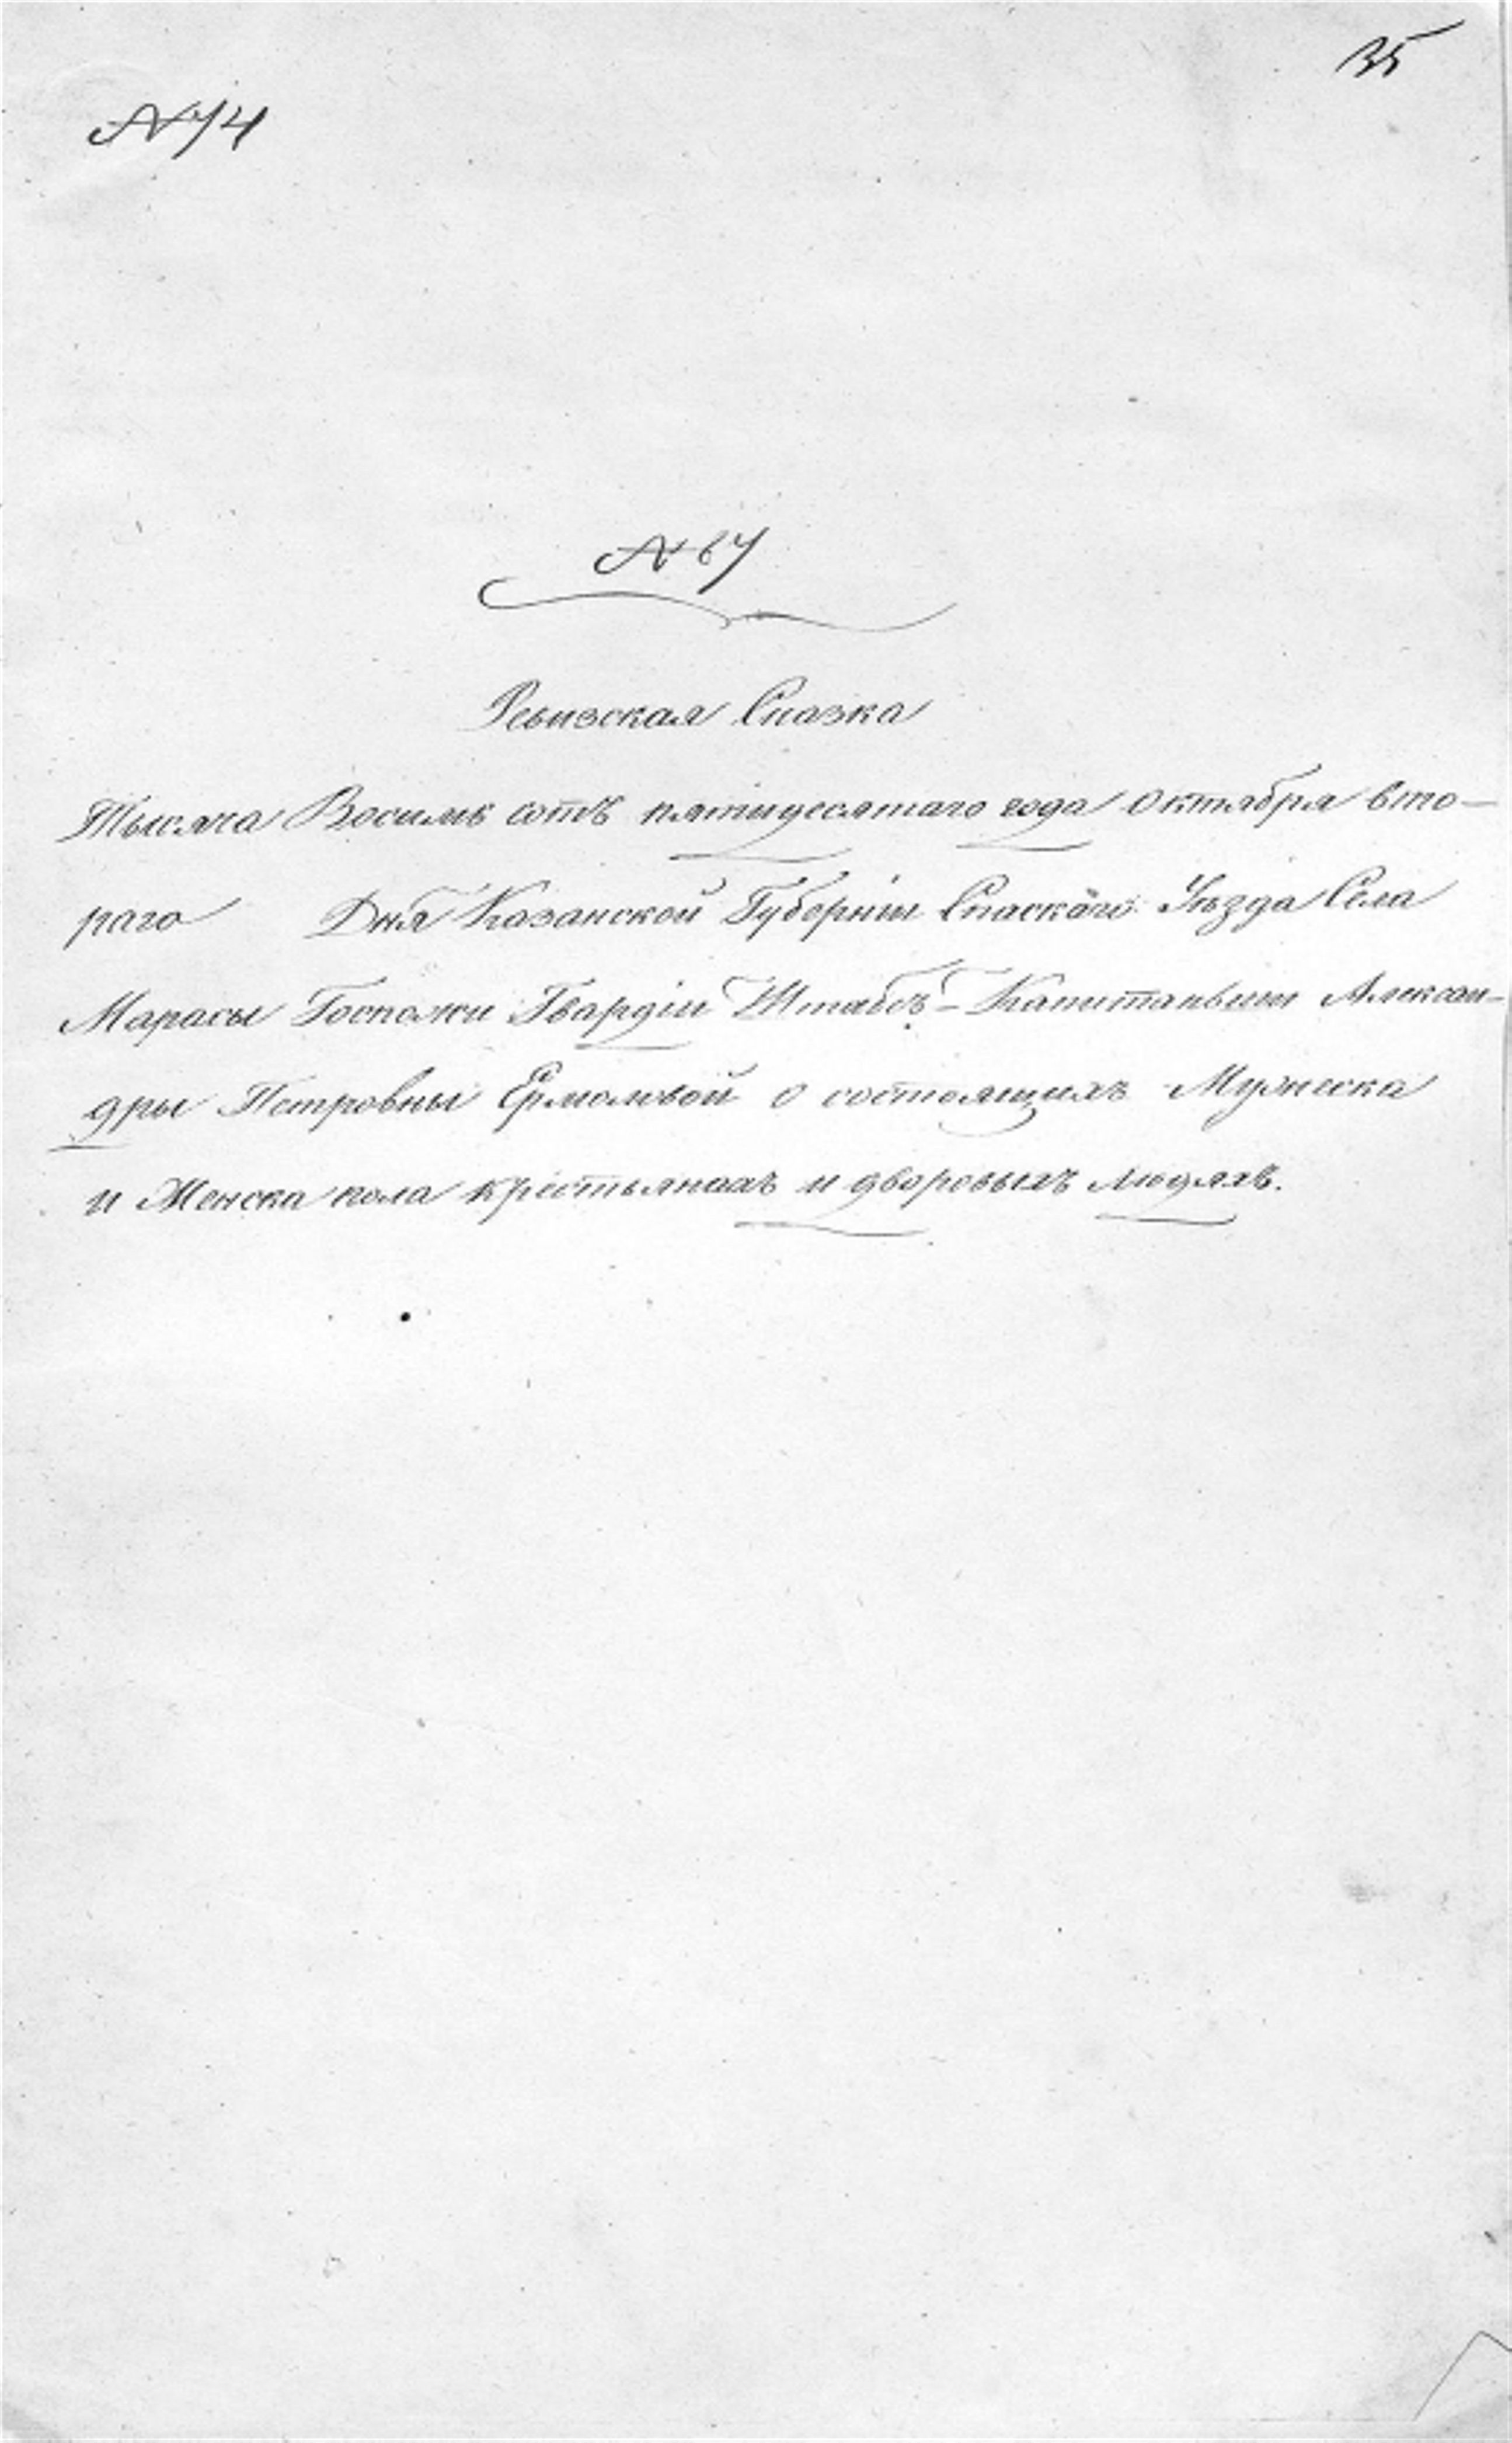 35
№ 74
№ 64
Ревизская Сказка
Тысяча Восимь сотъ пятидесятаго года Октября вто-
раго Дня Казанской Губерніи Спаскаго Уѣзда Села
Марасы Госпожи Гвардіи Штабсъ-Капитаньши Алексан-
дры Петровны Ермоловой о состоящихъ Мужеска
и Женска пола крестьянахъ и дворовыхъ людяхъ.